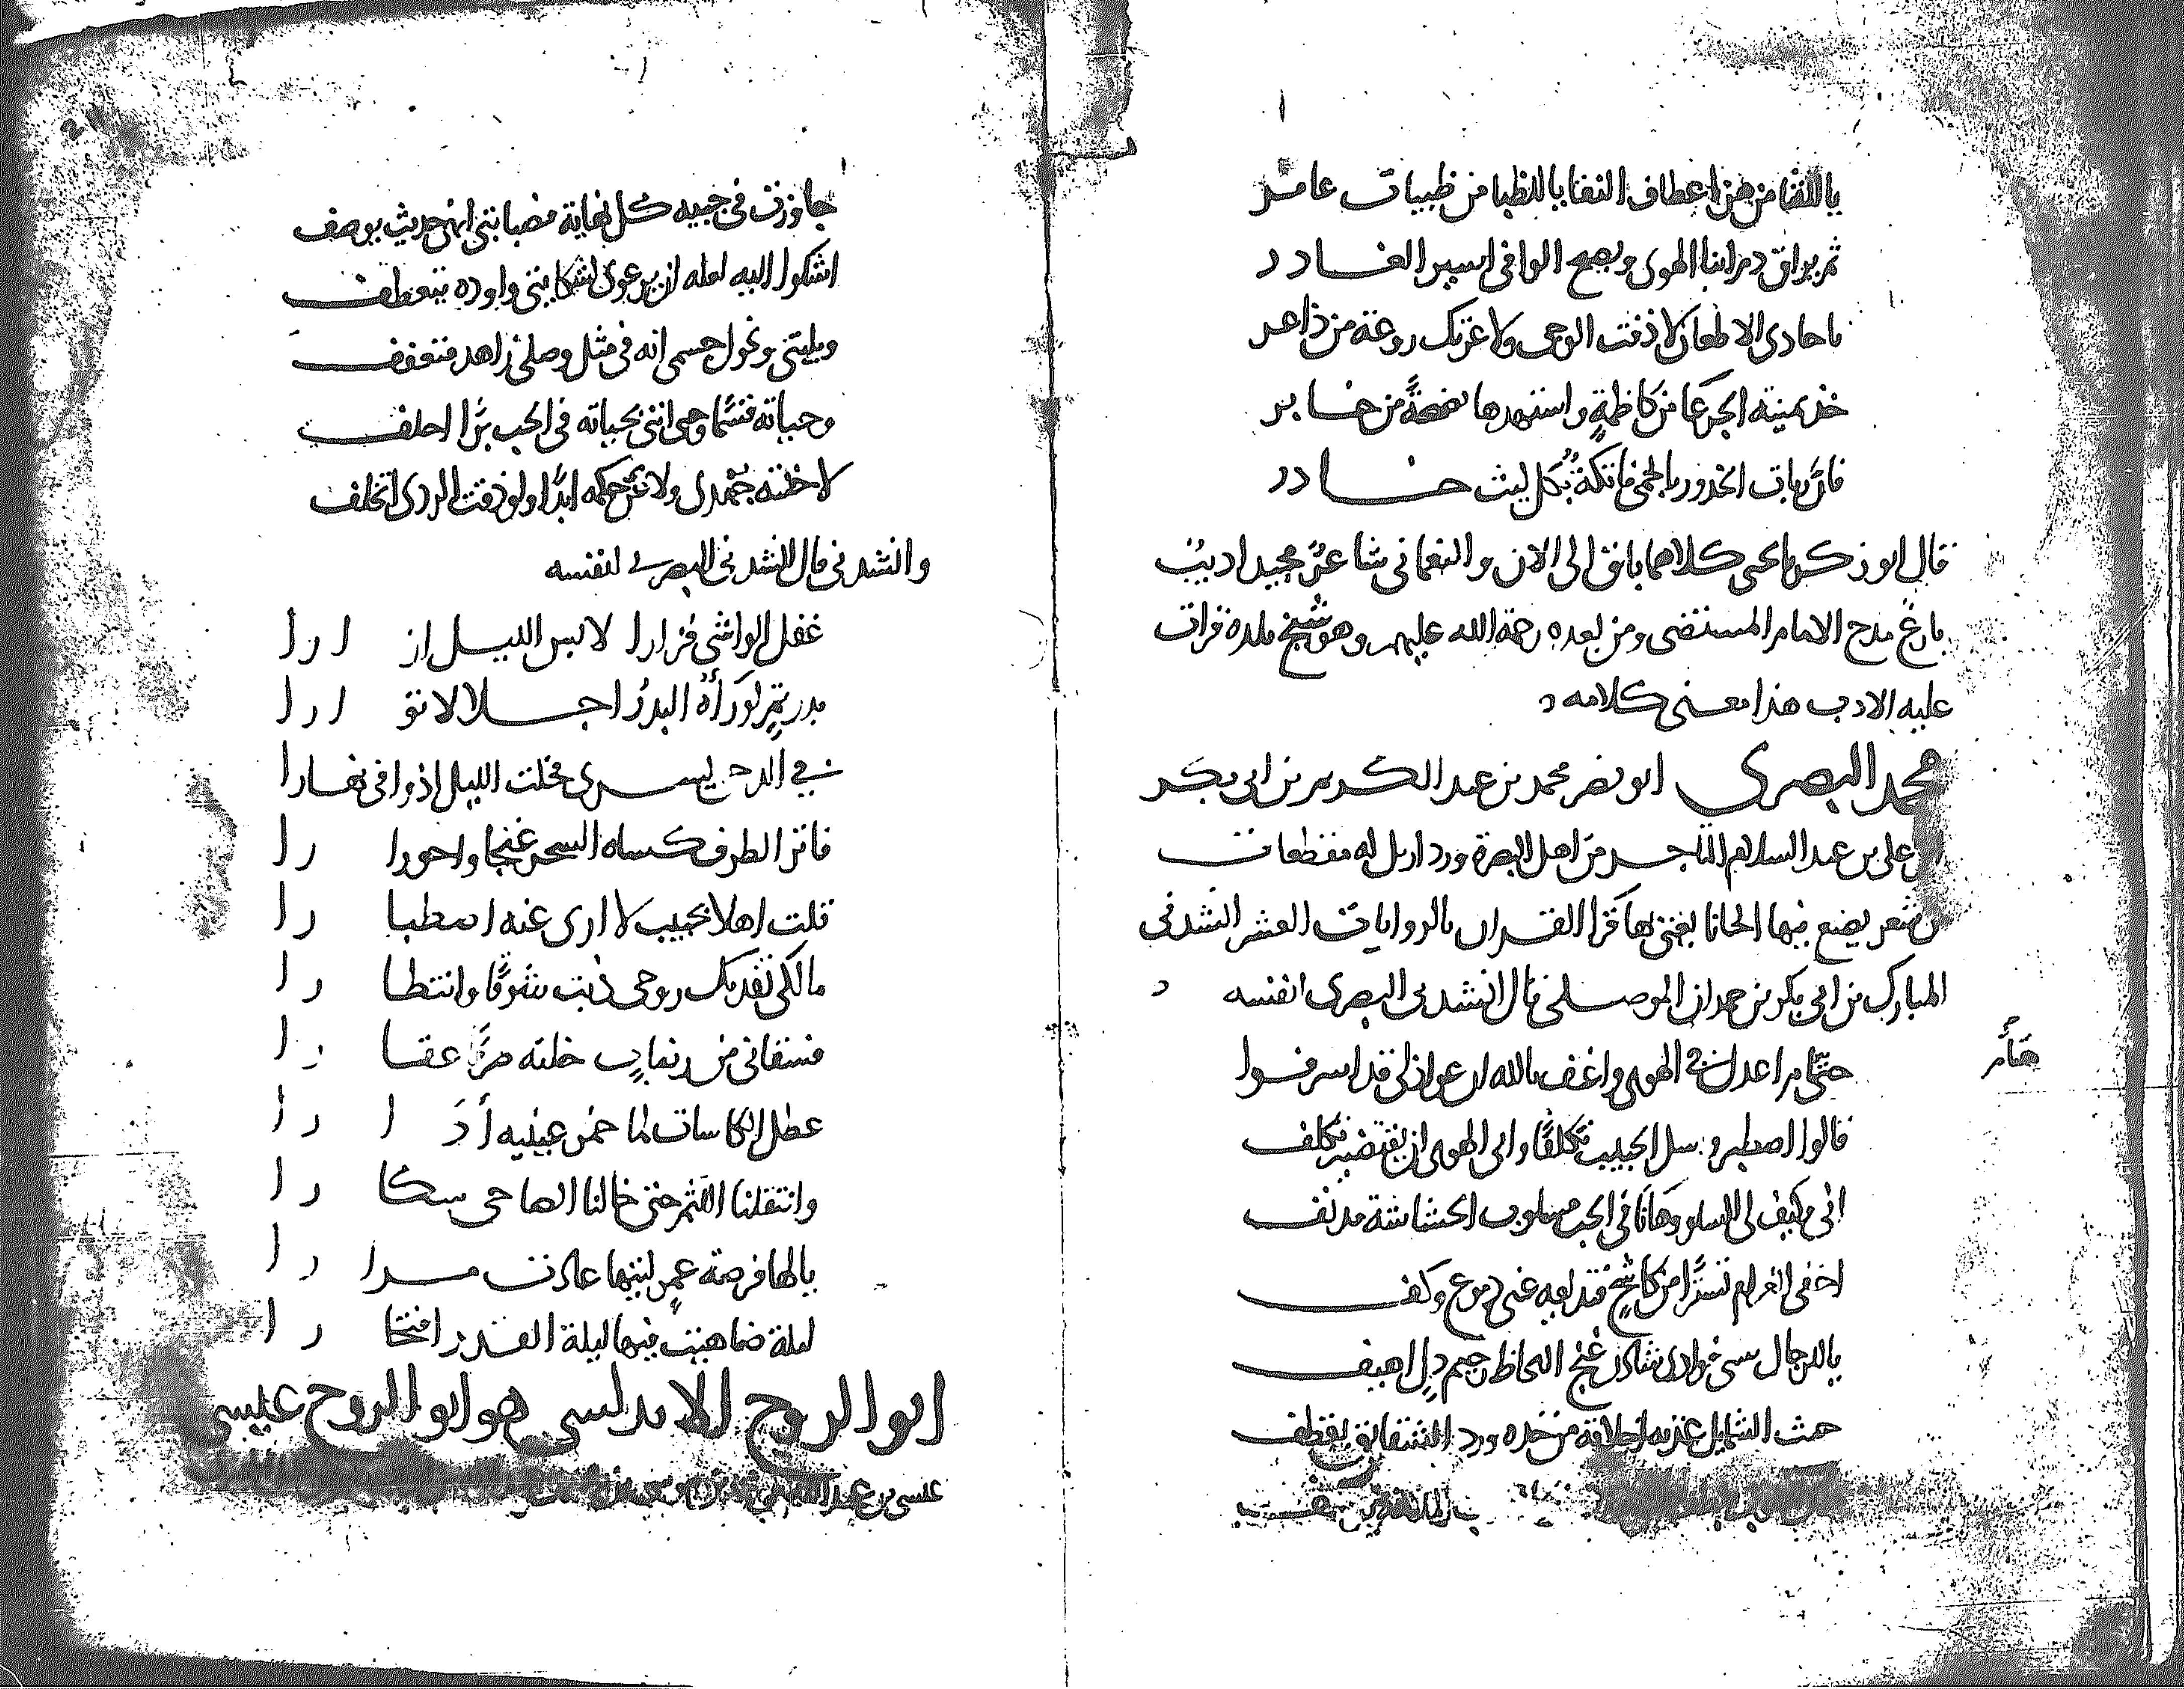 ياللنقا من هز اعطاف النقا ياللظبا من ظبيات عامر
ثم يراق دمرابنا الهوى ويصبح الوافي اسير الغادر
يا حادي الاظعان لا ذقت الوجى ولا عرتك روعة من ذاعر
خذ يمينه الجرعا من كاظمة واستهدها نفحة من حابر
فان ربات الخدور بالحمى فاتكة بكل ليث خادر
قال ابو زكريا يحيى كلاهما باق الى الان والنعماني شاعر مجيد اديب
بارع مدح الامام المستضى ومن بعده رحمة الله عليهم وهو شيخ بلده قرات
عليه الادب هذا معنى كلامه
محمد البصرى ابو نصر محمد بن عبد الكريم بن ابي بكر
بن علي بن عبد السلام التاجر من اهل البصرة ورد اربل له مقطعات
من شعر يضع فيها الحانا يغنى بها قرا القران بالروايات العشر انشدني
المبارك بن ابي بكر بن حمدان الموصلي قال انشدني البصرى لنفسه
حتام اعدل في الهوى واعنف بالله ان عواذلي قد اسرفوا
قالوا اصطبر وسل الحبيب تكلفا وابى الهوى ان يقتضيه تكلف
انى وكيف لي السلو وها انا في الحب مسلوب الحشاشة مدنف
اخفي الغرام تسترا من كاشح فتذيعه عني دموع وكف
ياللرجال سبى فوادي شادن غنج الحاظ رخيم دل اهيف
خنث الشمايل من خده ورد الشقائق يقطف
جاوزت في حبيه كل نهاية فصبابتي انهى حديث يوصف
اشكوا اليه لعله ان يرعوي لشكايتي واوده يتعطف
وبليتي ونحول جسمي انه في مثل وصلي زاهد متعفف
وحياته قسما وحي انني بحياته في الحب برا احلف
لا خنته جهدي ولا عن حكمه ابدا ولو ذقت الردى اتخلف
وانشدني قال انشدني البصري لنفسه
غفل الواشي فزارا لابس الليل ازارا
بدر تم لو رأه البدر اجلالا توارا
في الدجى يسرى فخلت الليل اذ وافى نهارا
فاتر الطرف كساه السحر غنجا واحورارا
قلت اهلا بحبيب لا ارى عنه اصطبارا
مالكي تفديك روحي ذبت شوقا وانتظارا
فسقاني من رضاب خلته صرفا عقارا
عطل الكاسات لما خمر عينيه أدارا
وانتقلنا اللثم حتى خالنا الصاحي سكارا
يالها فرصة عمر ليتها عادت مرارا
ليلة ضاهيت فيها ليلة القدر افتخارا
ابو الروح الاندلسي هو ابو الروح عيسى
عيسى بن عبد الله بن محمد بن